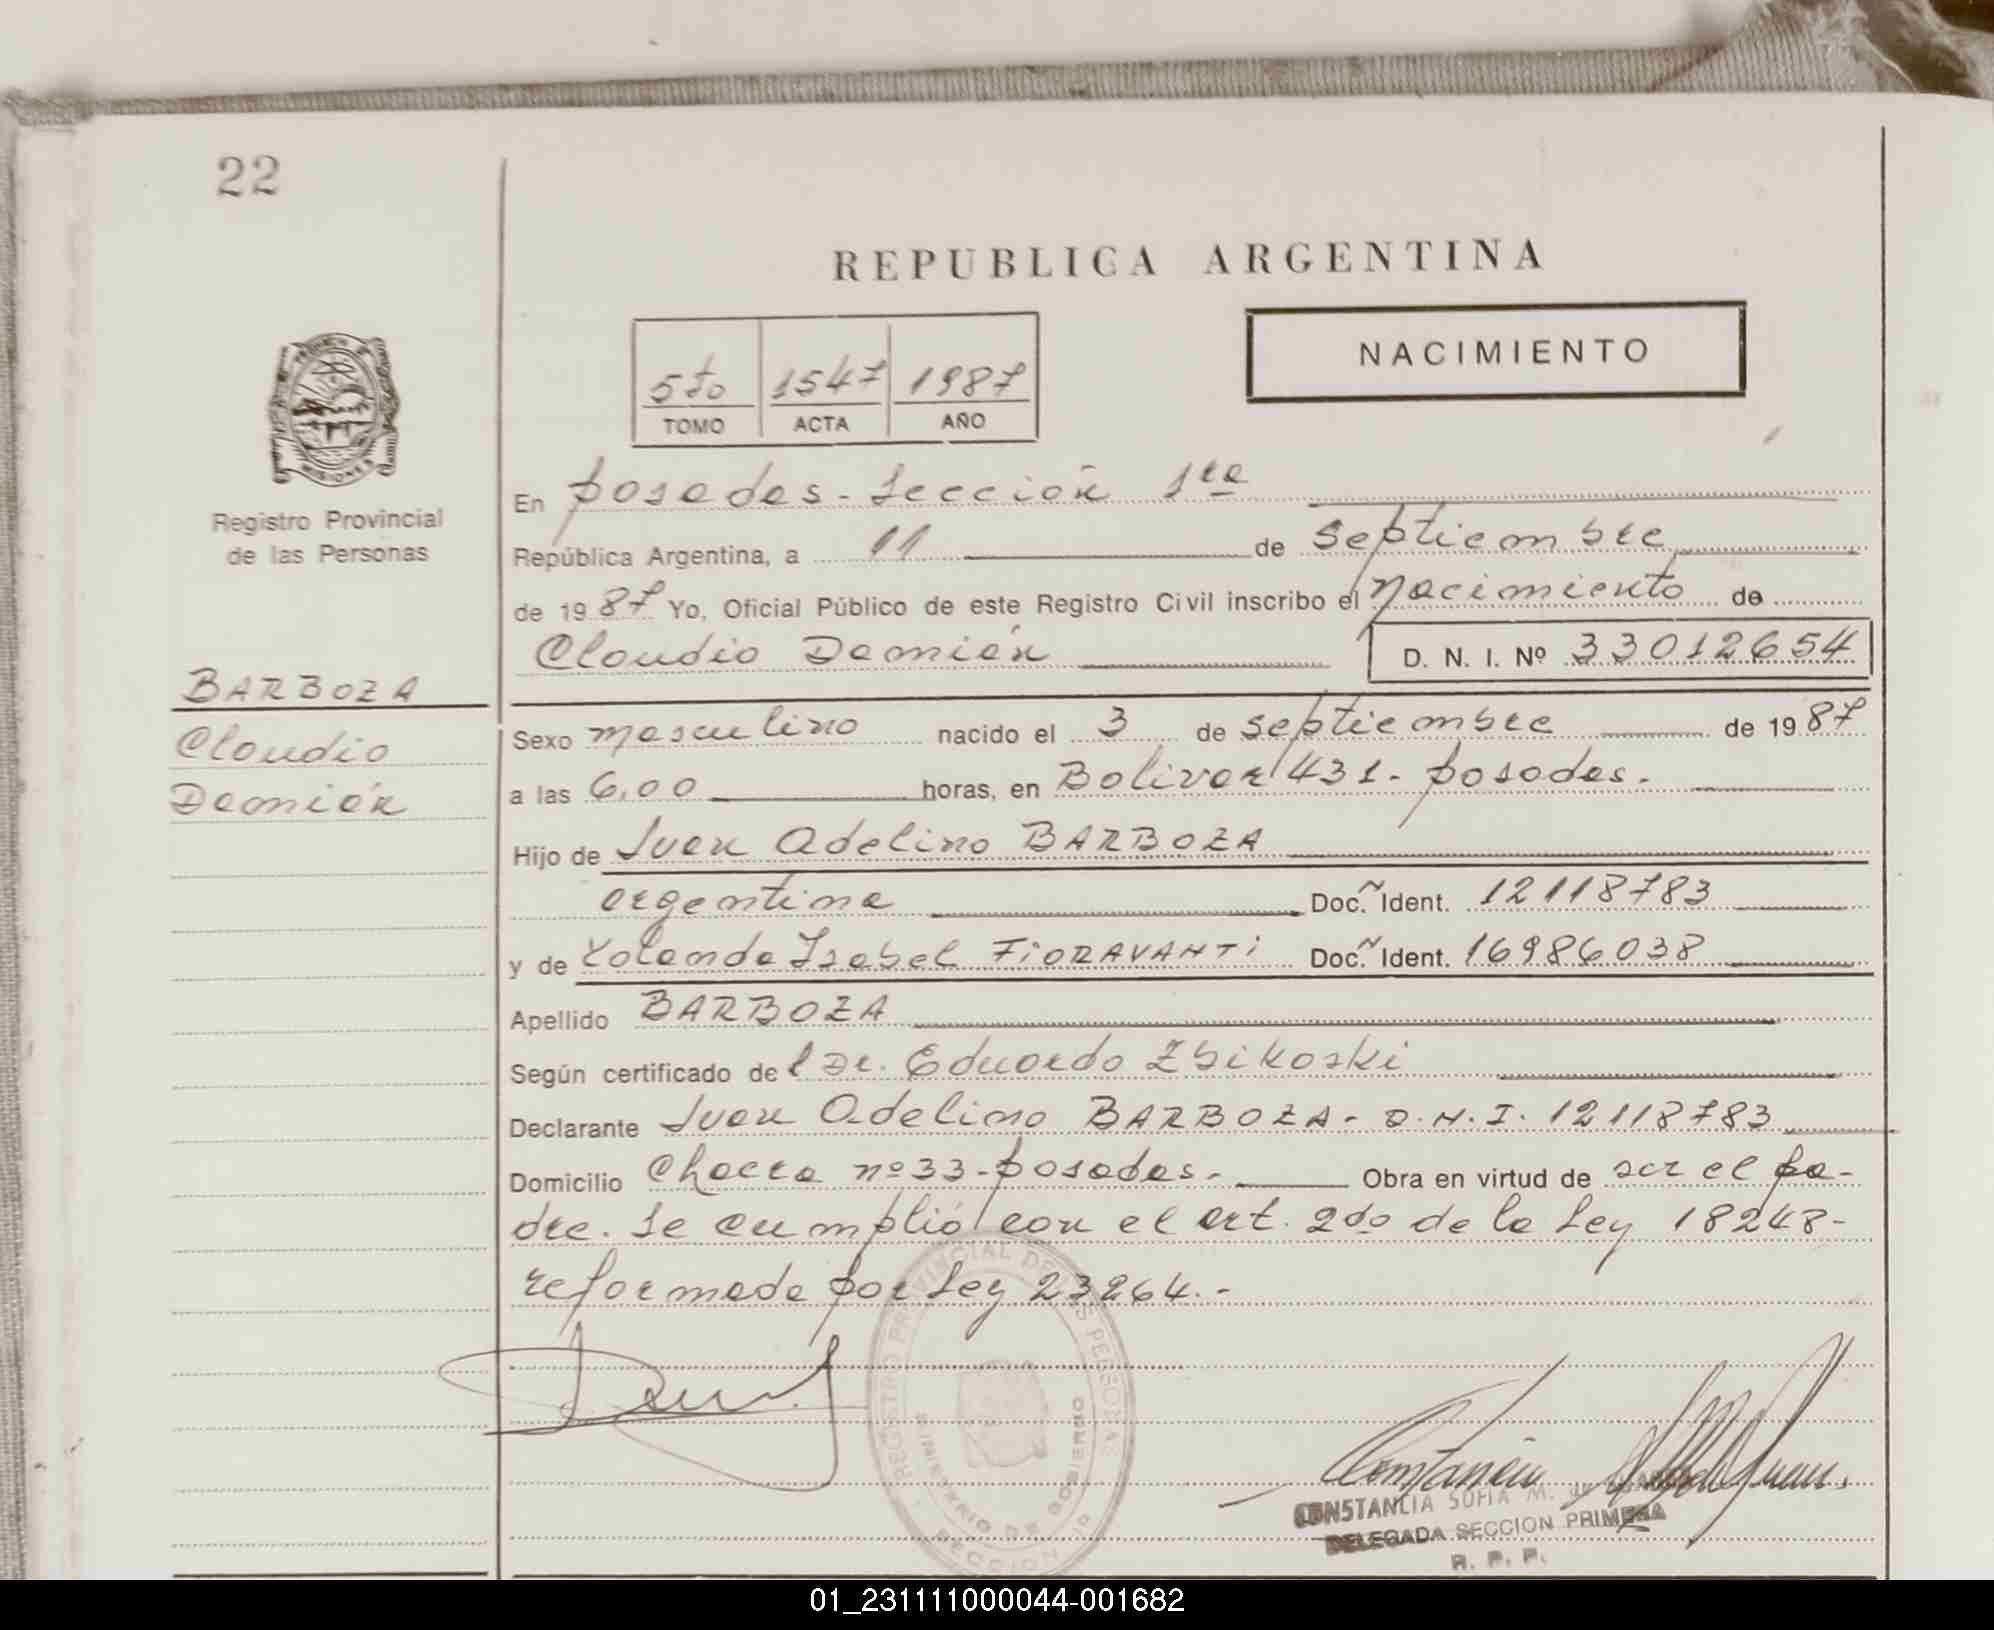 22
REPUBLICA ARGENTINA
NACIMIENTO
5to 1547 1987
TOMO ACTA AÑO
MISIONES
Registro Provincial
de las Personas
En Posadas - Sección 1ra
República Argentina, a 11 de septiembre
de 1987 Yo, Oficial Público de este Registro Civil inscribo el nacimiento de
Claudio Damián D. N. I. Nº 33012654
BARBOZA
Claudio
Damián
Sexo masculino nacido el 3 de septiembre de 1987
a las 6,00 horas, en Bolivar 431 - Posadas.
Hijo de Juan Adelino BARBOZA
argentina Doc. Ident. 12118783
y de Yolanda Isabel FiORAVANTi Doc. Ident. 16986038
Apellido BARBOZA
Según certificado del Dr. Eduardo Zbikoski
Declarante Juan Adelino BARBOZA - D.N.I. 12118783
Domicilio Chacra nº 33 - Posadas. Obra en virtud de ser el pa-
dre. Se cumplió con el art. 2do de la Ley 18248-
reformada por Ley 23264.-
REGISTRO PROVINCIAL DE LAS PERSONAS
MINISTERIO DE GOBIERNO
SECCION 1a
CONSTANCIA SOFIA M. de
DELEGADA SECCION PRIMERA
R. P. P.
01_231111000044-001682